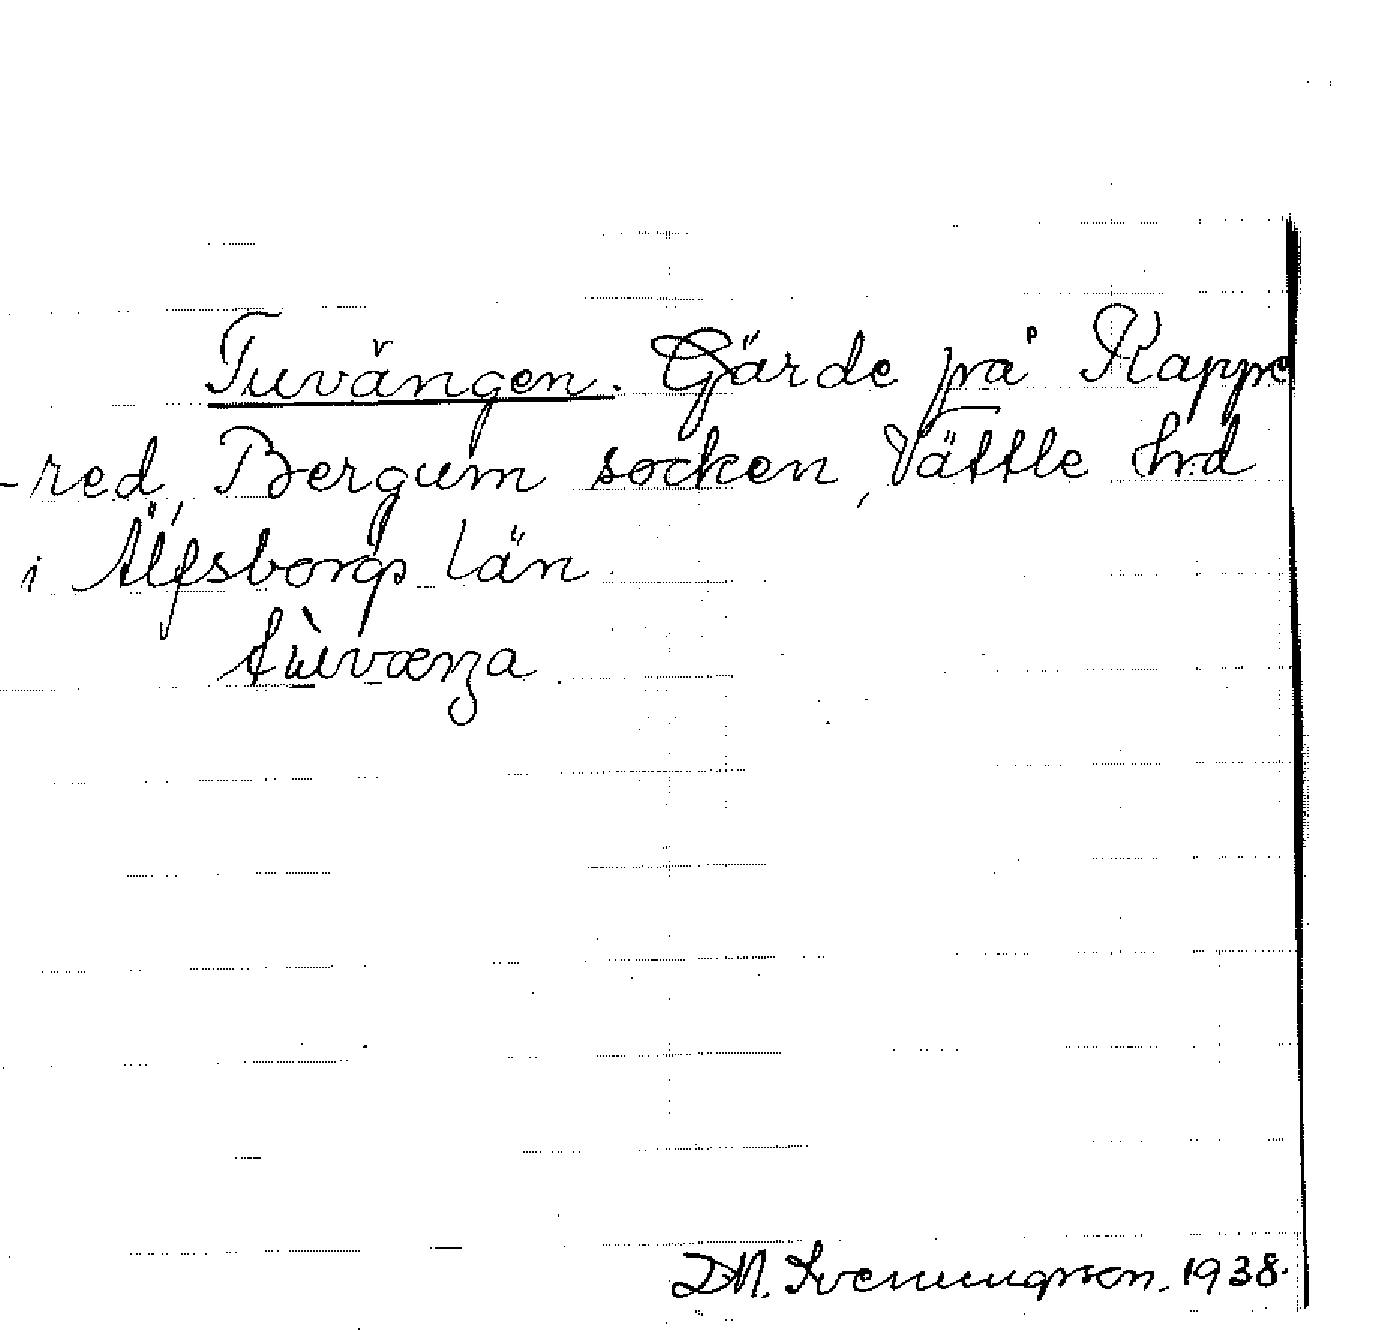 Tuvängen. Gärde på Rappe
-red, Bergum socken, Vättle hrd
i Älfsborgs län
tùvænza
D.M. Svenungsson. 1938.